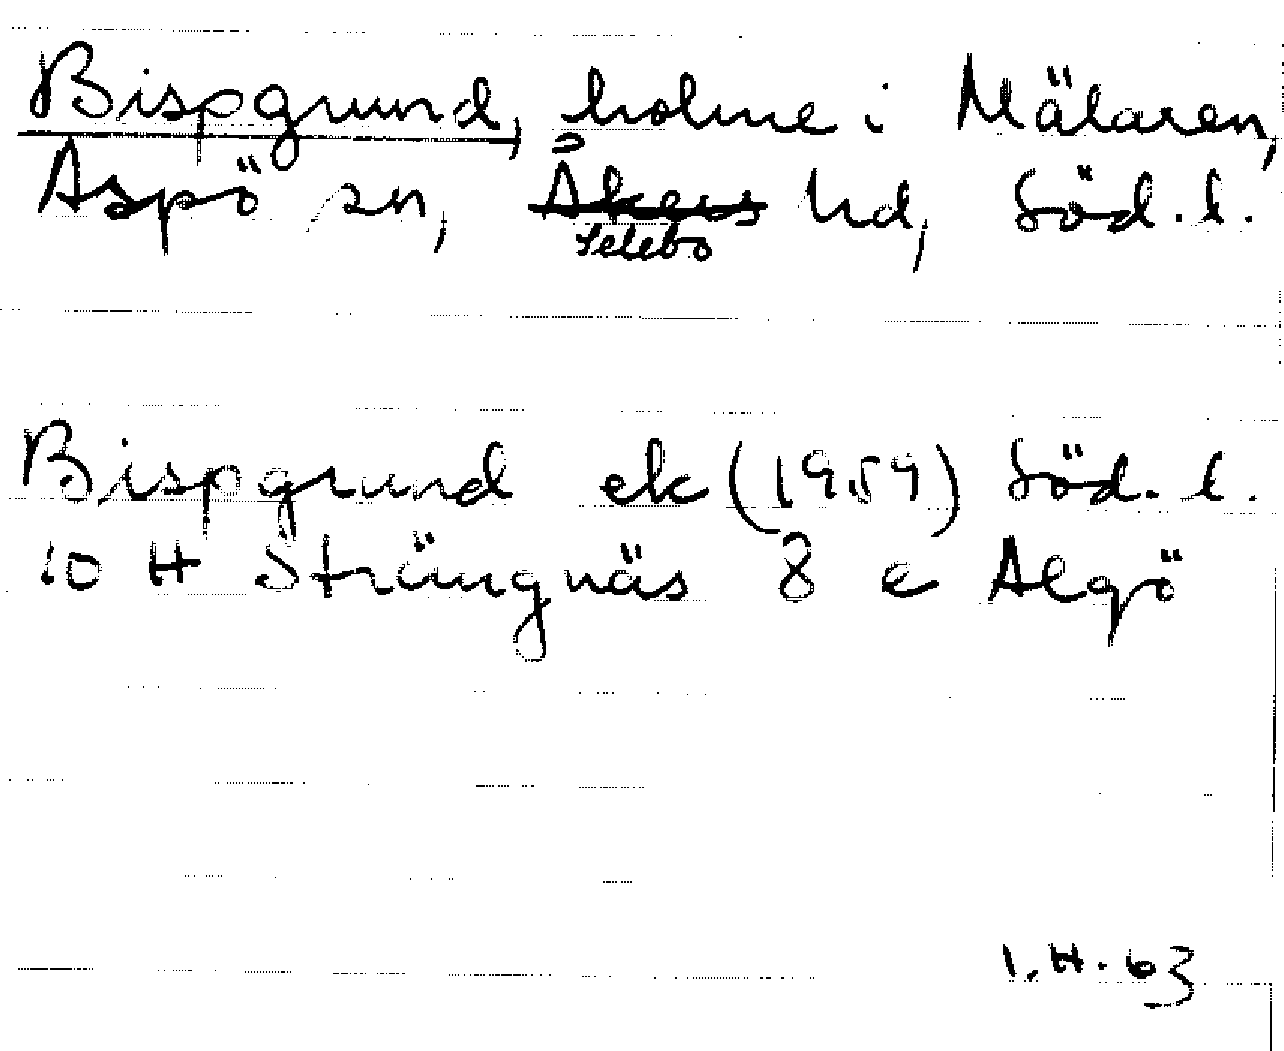 Bispgrund, holme i Mälaren,
Aspö sn, Åkers hd, Söd. l.
Selebo
Bispgrund ek (1959) Söd. l.
10 H Strängnäs 8 e Algö
I.H. 63